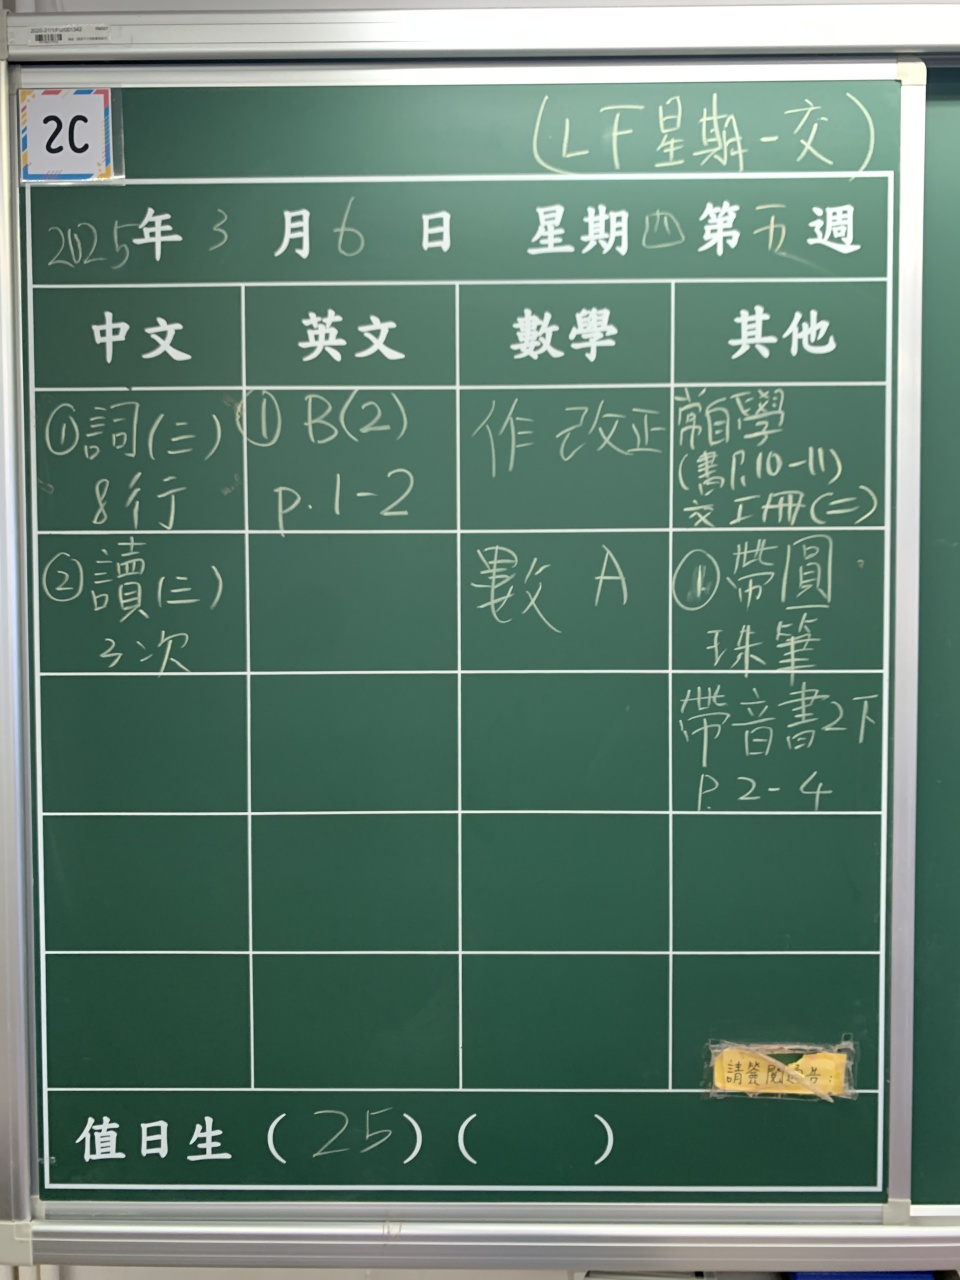 2C
(L下星期一交)
2025年3月6日 星期四 第五週
中文 英文 數學 其他
①詞(三)
8行
①B(2)
p.1-2
作 改正
常自學
(書P.10-11)
交工冊(二)
②讀(三)
3次
數 A
①帶圓
珠筆
帶音書2下
P.2-4
請簽閱通告:
值日生(25)( )